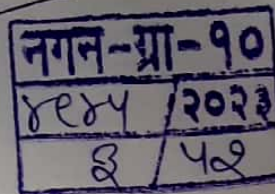 नगन-ग्रा-१०
४९४५ / २०२३
३ / ५२